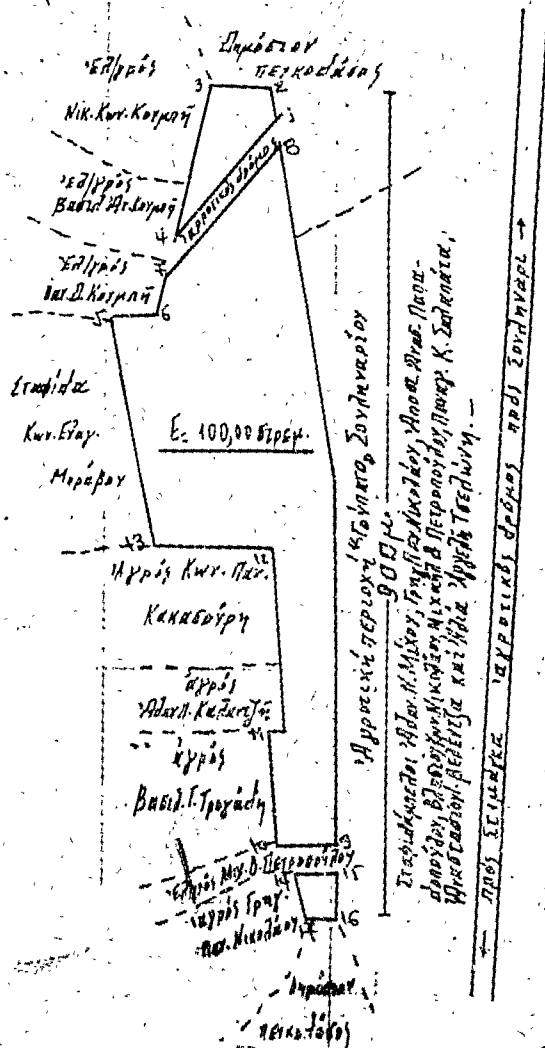 Δημόσιον
πευκοδάσος
Ἐλ/γρός
Νικ. Κων. Κουμπῆ
3
2
1
8
ἀγροτικός δρόμος
Ἐλ/γρός
Βασιλ. Ἀν. Κουμπῆ
4
7
Ἐλ/γρός
Δ. Κουμπῆ
5
6
Σταφίδα
Κων. Εὐαγ.
Μοράβου
Ε= 100,00 στρέμ.
13
12
Ἀγρός Κων. Παν.
Κακαβούρη
ἀγρός
Ἀθαν. Π. Καλαντζῆ
11
ἀγρός
Βασιλ. Γ. Τρυγάκη
9
Ἐλ/γρός Μιχ. Β. Πετροπούλου
15
ἀγρός Γρηγ.
Παν. Νικολάου
16
Δημόσιον
πευκοδάσος
Ἀγροτική περιοχή "Γούπατο" Σουληναρίου
900 μ.
Σταφιδάμπελοι Ἀθαν. Ν. Μίχου, Γρηγ. Παν. Νικολάου, Ἀποστ. Ἀναστ. Παπα-
δοπούλου, Νικολάου, Μιχαήλ Β. Πετροπούλου, Παναγ. Κ. Σαλαπάτα,
Ἀναστασίου Βελέντζα καί Ἠλία Ἀγγελῆ Τσελώνη.—
← πρός Στιμάγκα ἀγροτικός δρόμος πρός Σουληνάρι →